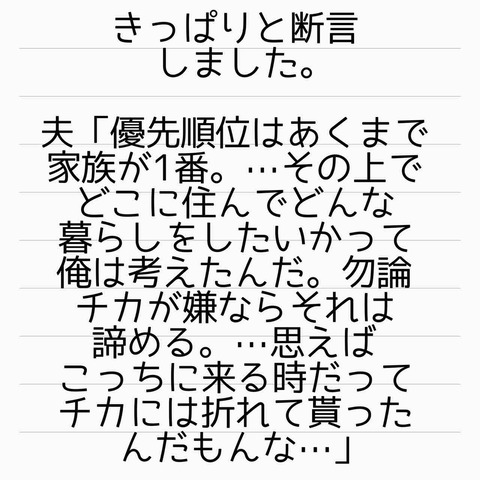 きっぱりと断言
しました。
夫「優先順位はあくまで
家族が1番。…その上で
どこに住んでどんな
暮らしをしたいかって
俺は考えたんだ。勿論
チカが嫌ならそれは
諦める。…思えば
こっちに来る時だって
チカには折れて貰った
んだもんな…」